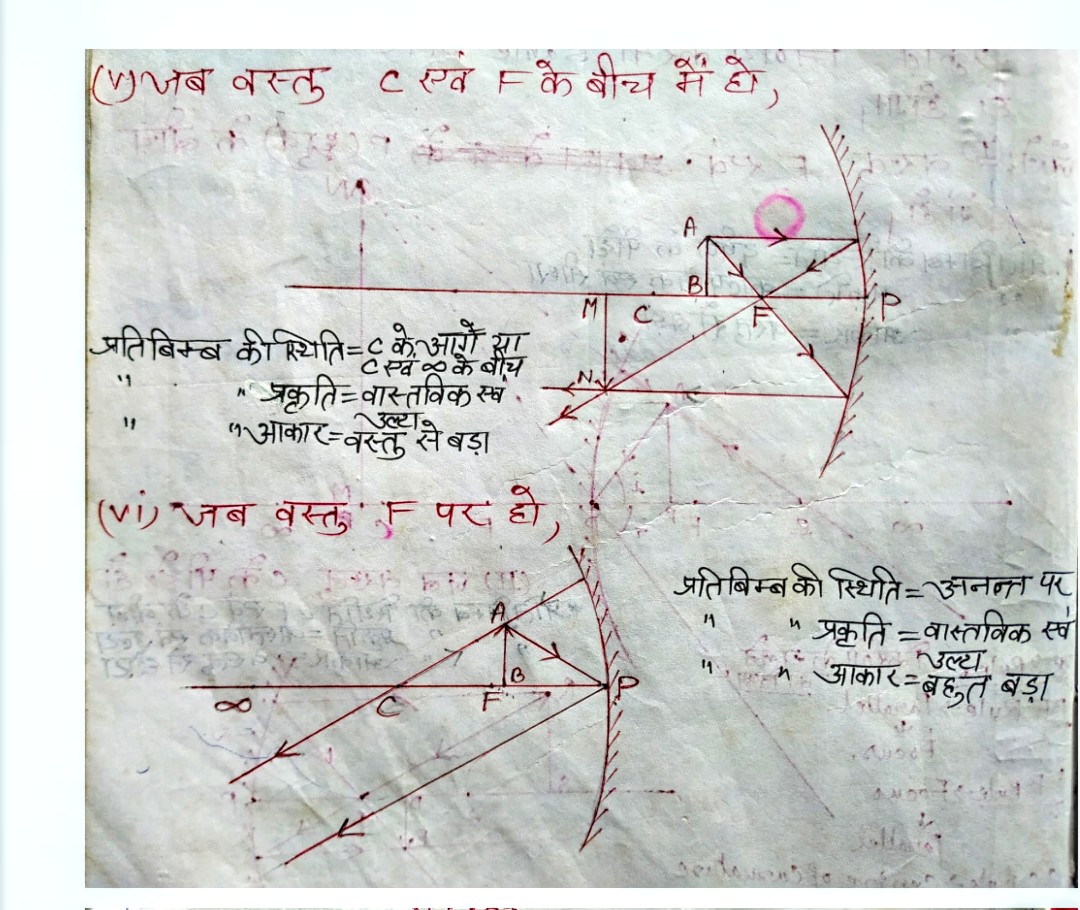 (v) जब वस्तु C एवं F के बीच में हो,
A
B
M
C
F
P
N
प्रतिबिम्ब की स्थिति = C के आगे या
C एवं ∞ के बीच
" " प्रकृति = वास्तविक एवं
उल्टा
" " आकार = वस्तु से बड़ा
(vi) जब वस्तु F पर हो,
प्रतिबिम्ब की स्थिति = अनन्त पर
" " प्रकृति = वास्तविक एवं
उल्टा
" " आकार = बहुत बड़ा
A
B
∞
C
F
P